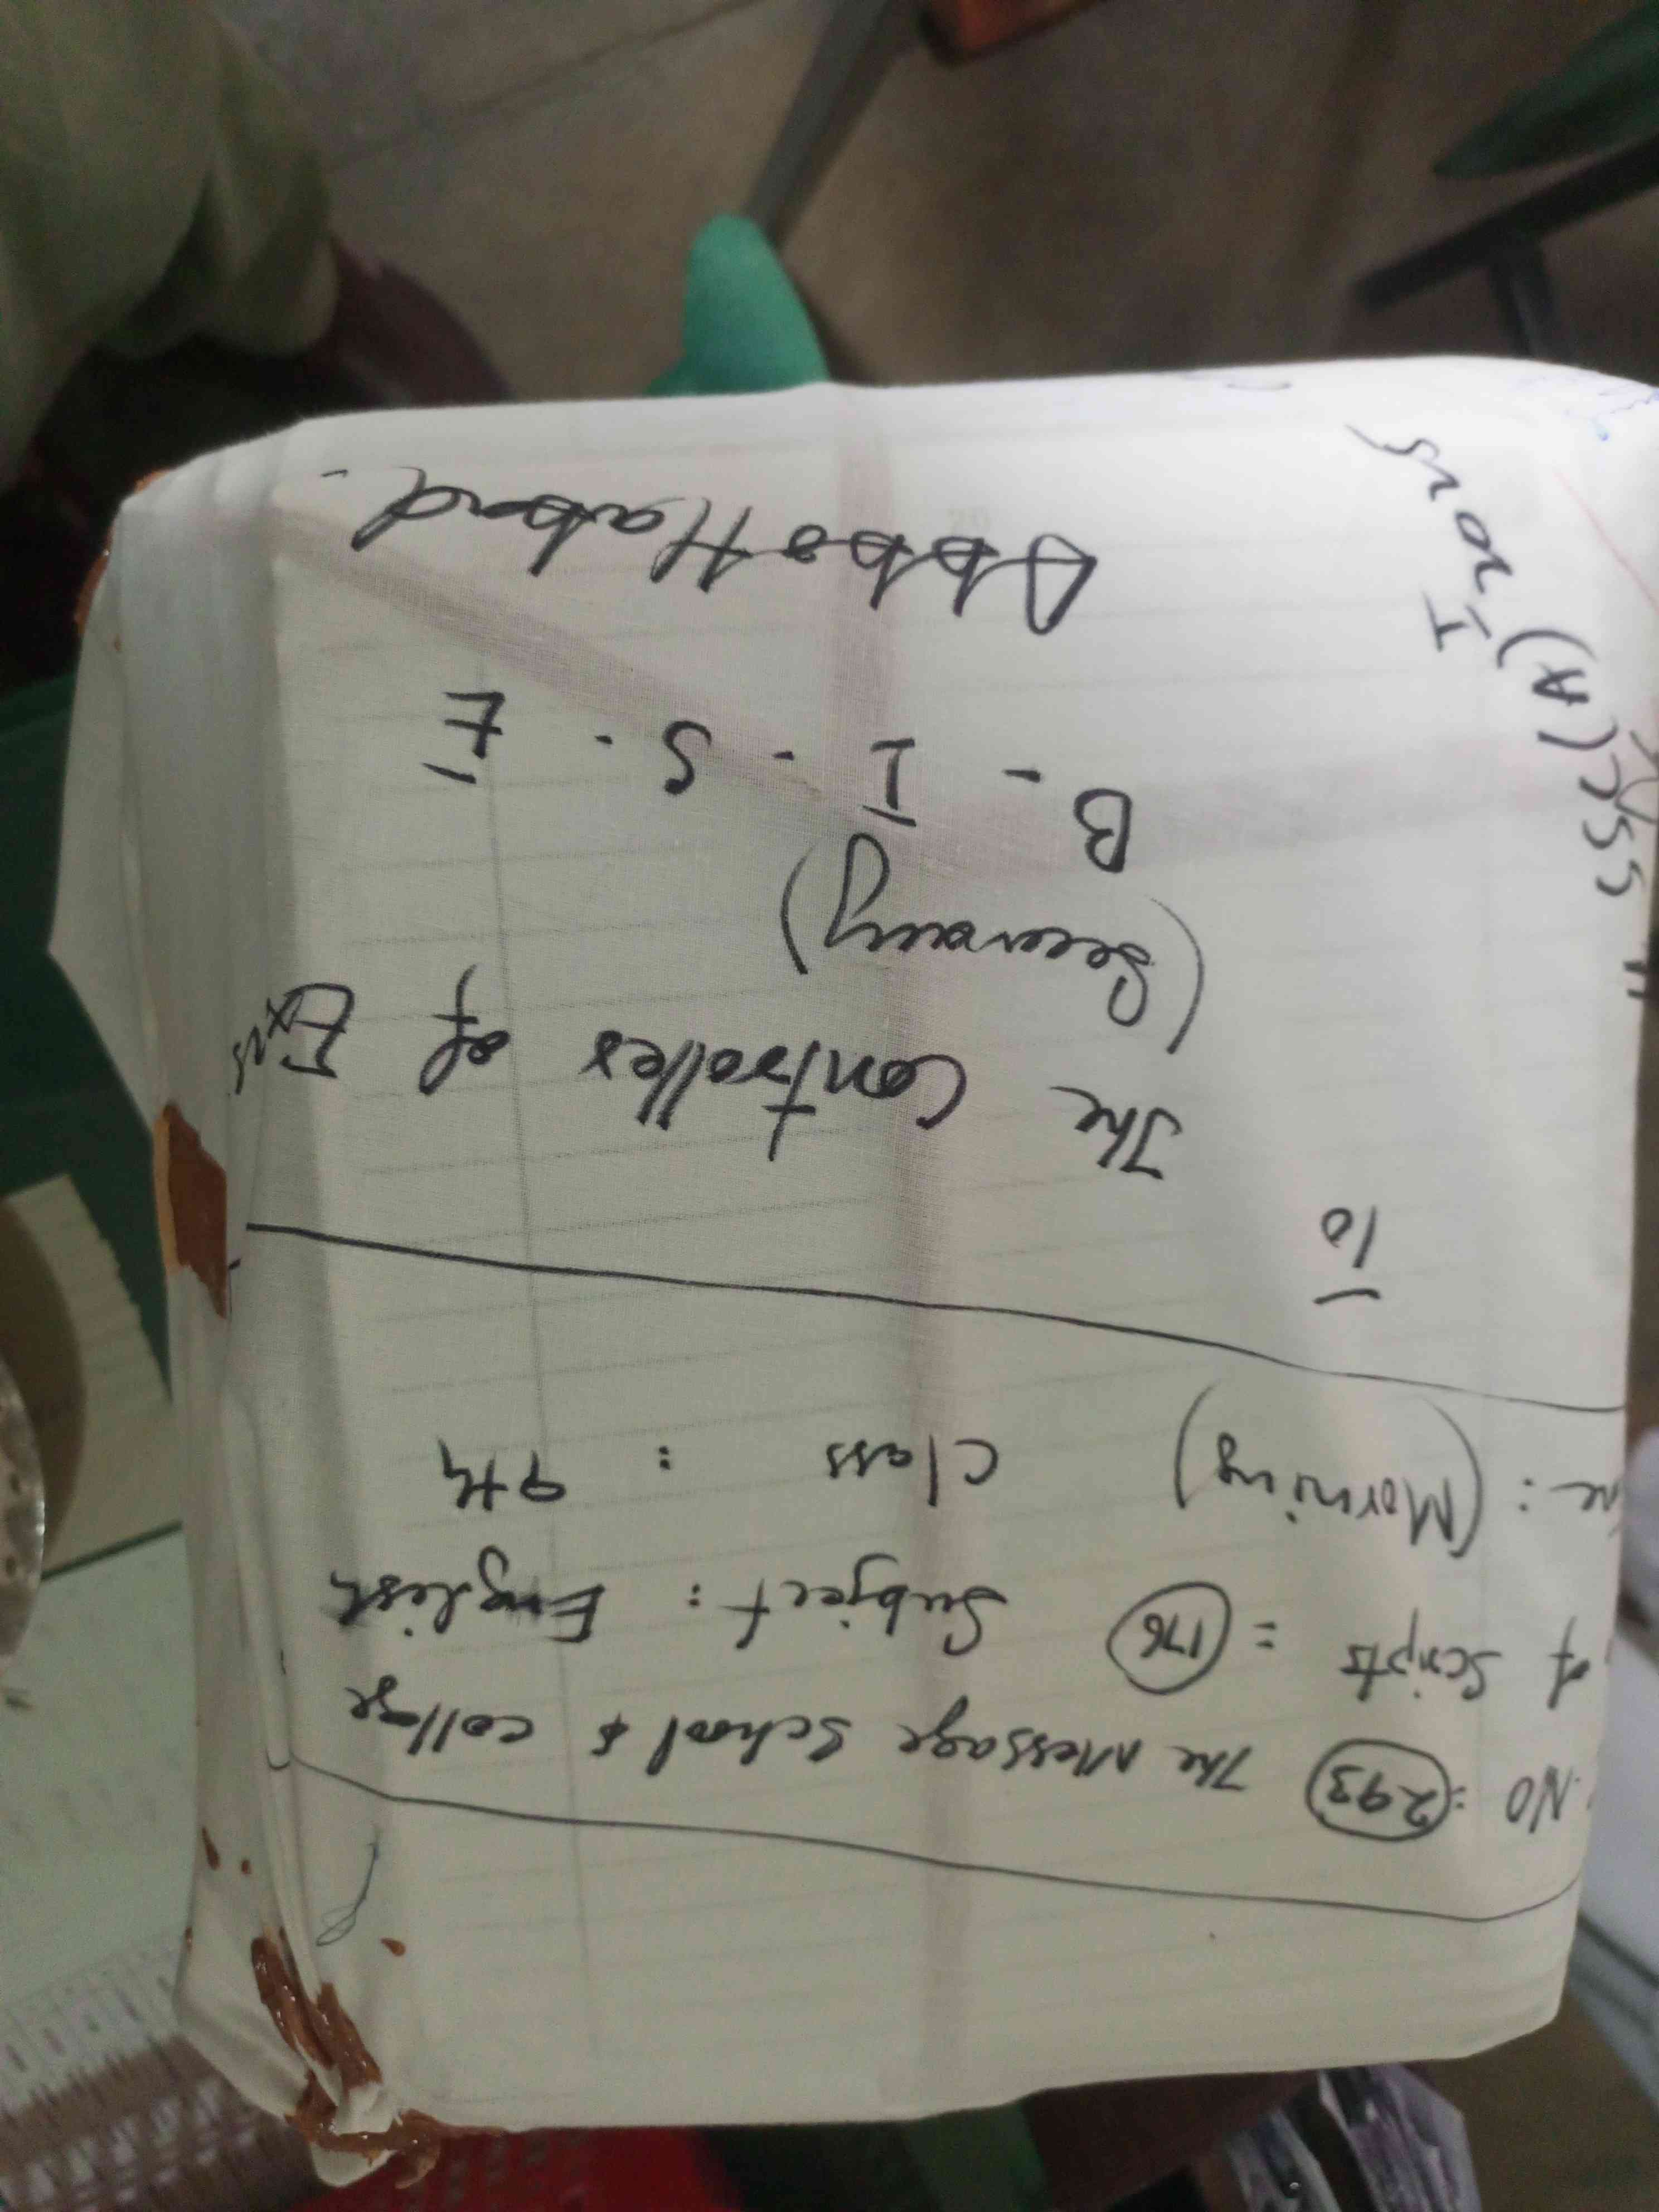 NO = 293 The Message School & college
of Scripts = 176 Subject : English
me : (Morning) Class : 9th
To
The Controller of Exms
(Secrecy)
B - I - S - E
AbboHabad -
SSC(A)